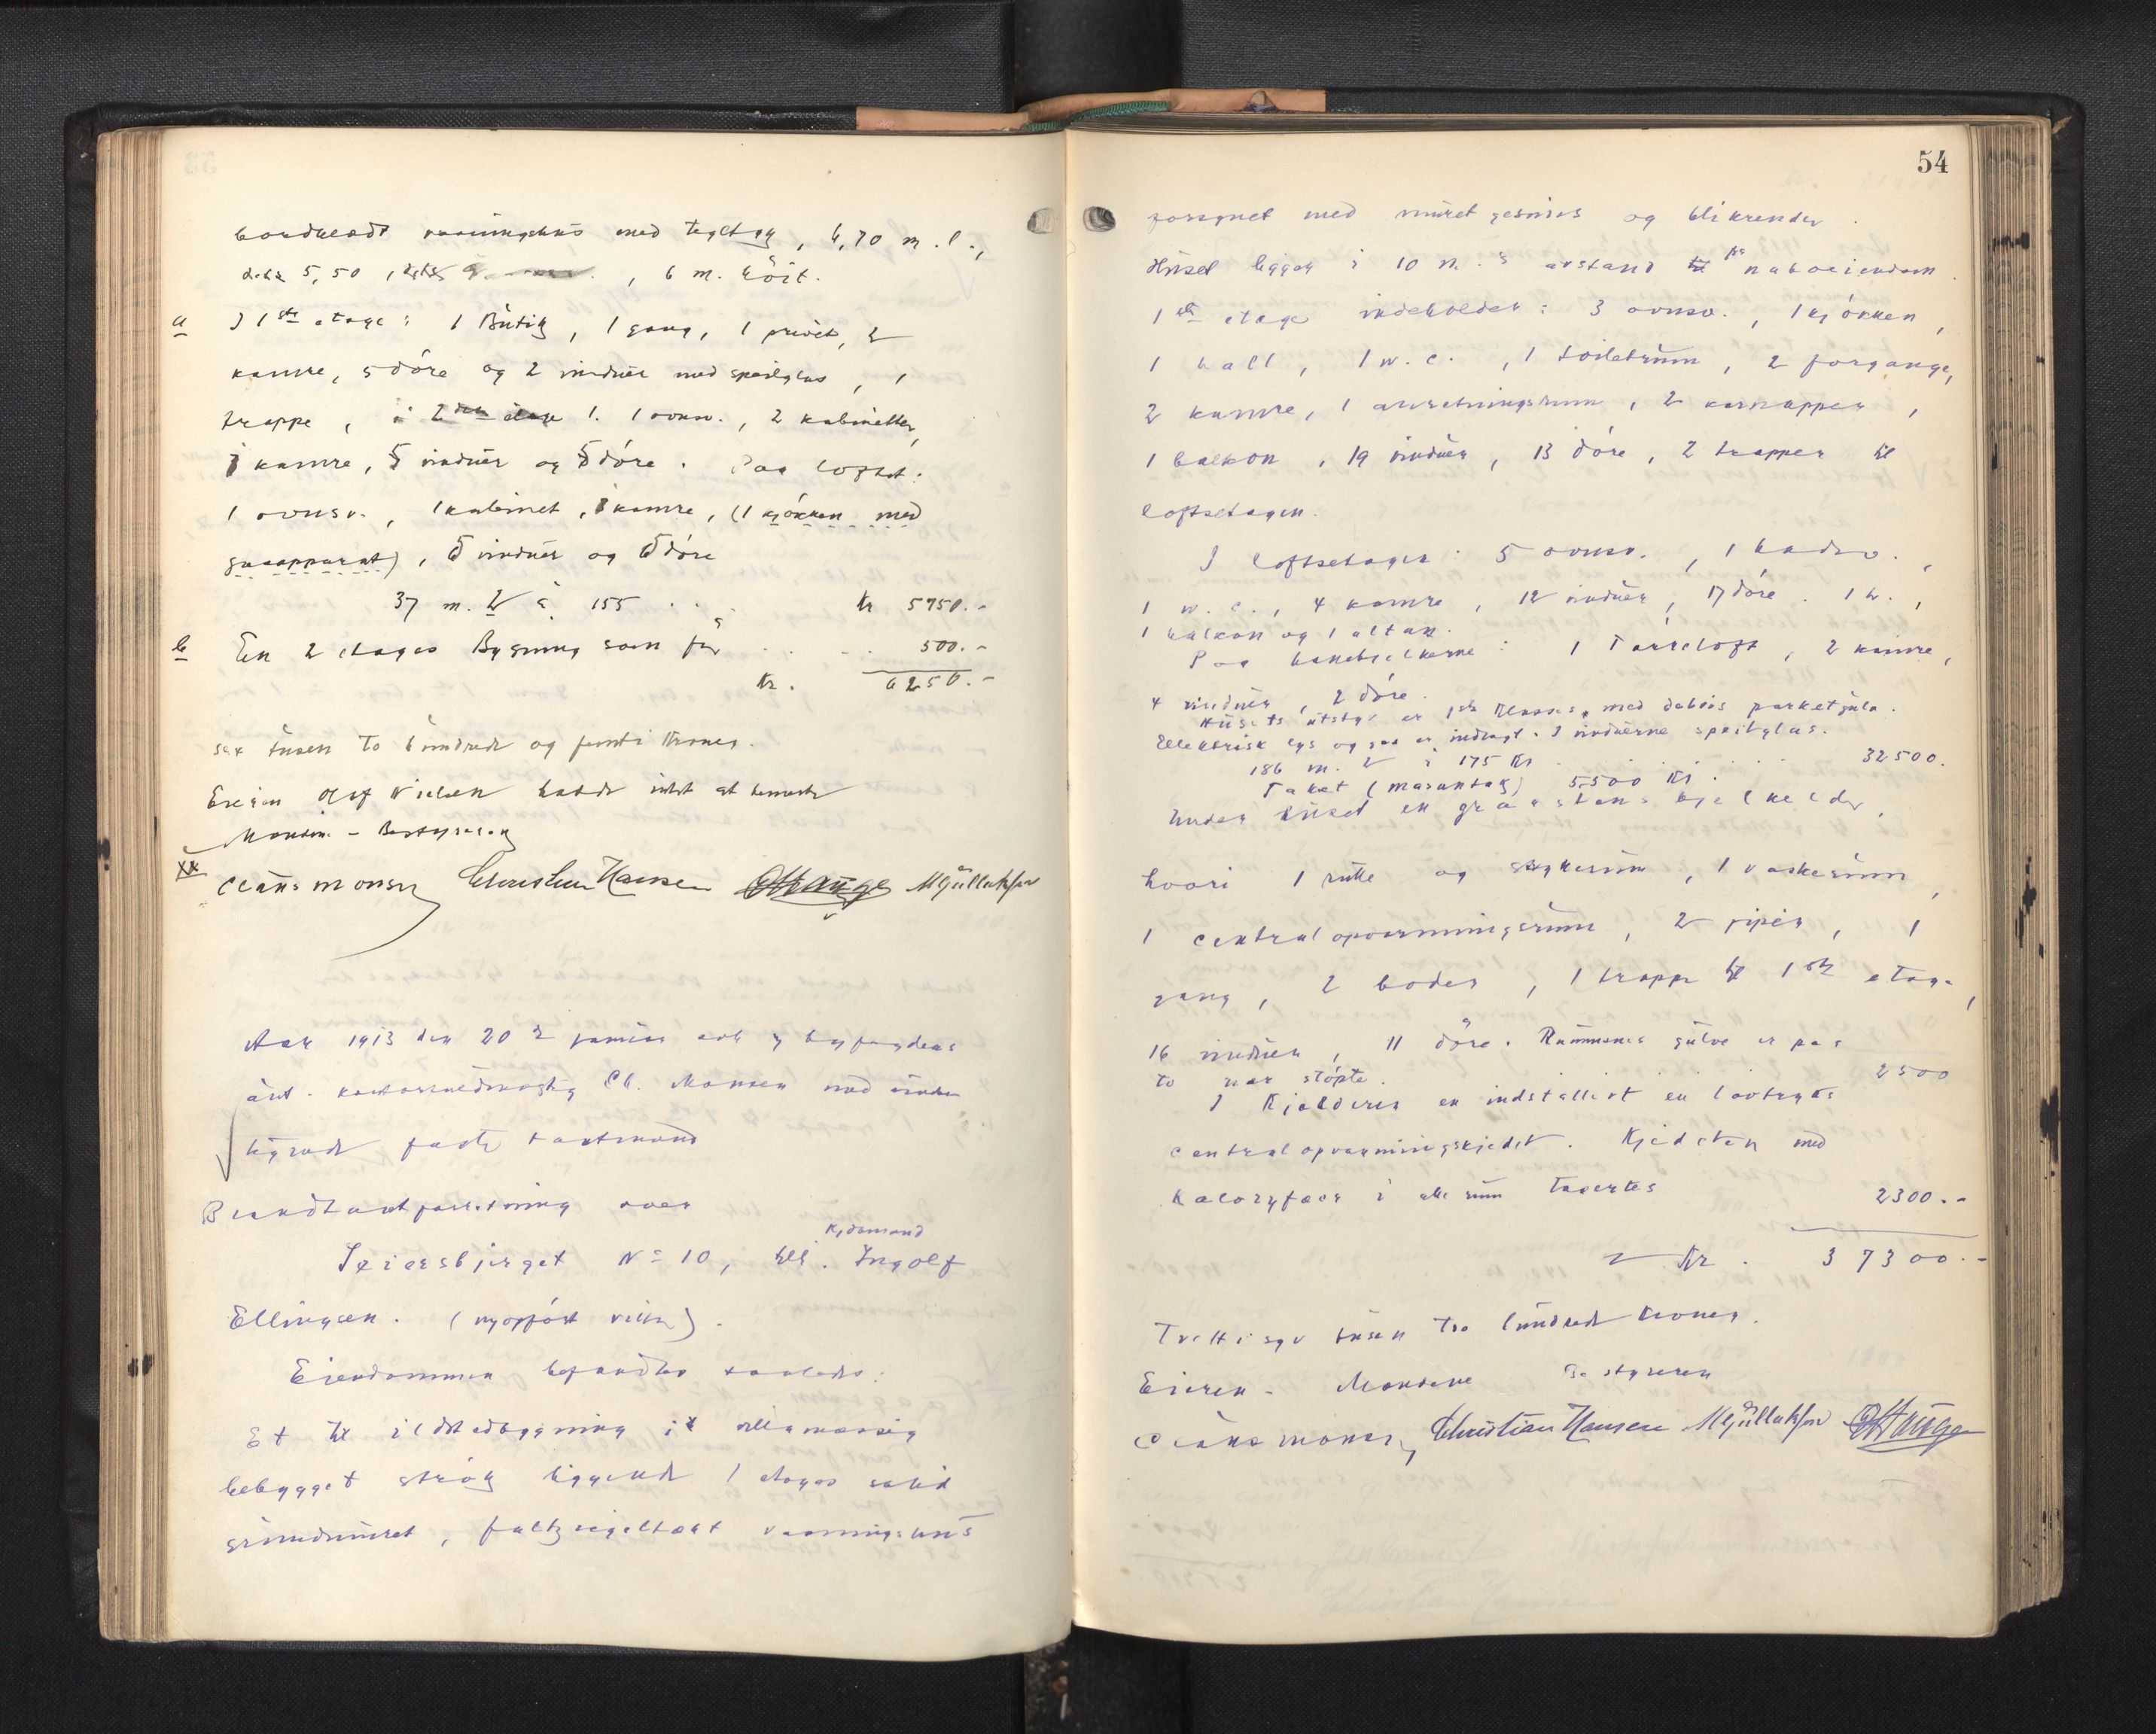 bordklædt vaaningshus med tegltag, 6,70 m. l.,
dets 5,50, 6 m. høit.
a I 1ste etage: 1 Butik, 1 gang, 1 privet, 2
kamre, 5 døre og 2 vinduer med speilglas, 1
trappe, i 2den etage 1. 1 ovnsv., 2 kabinetter,
kamre, 5 vinduer og 5 døre. Paa loftet:
1 ovnsv., 1 kabinet, kamre, (1 kjøkken med
gasapparat), 5 vinduer og 6 døre
37 m. 2 á 155 . . Kr 5750.-
b En 2 etages Bygning som før . . . 500.-
Kr. 6250.-
sex tusen To hundrede og femti Kroner.
Eieren Olaf Nielsen havde intet at bemerke
Mændene - Bestyreren
Claus Monsen Christian Hansen O Hauge M Gjullaksen
Aar 1913 den 20de januar blev byfogdens
aut. kontorfuldmægtig Cl. Monsen med under
tegnede faste taxtmænd
Brandtaxtforretning over
Kjøbmand
Seiersbjerget No 10, till. Ingolf
Ellingsen. (nyopført villa).
Eiendommen befandtes saaledes:
Et til ildstedbygning i villamæssig
bebygget strøg liggende 1 etages solid
grundmuret, faltziegeltækt vaaningshus
54
forsynet med muret gesims og blikrender.
Huset ligger i 10 m.s avstand fra naboeiendom.
1ste etage indeholder: 3 ovnsv., 1 kjøkken,
1 hall, 1 w.c., 1 toiletrum, 2 forgange,
2 kamre, 1 anretningsrum, 2 karnapper,
1 balkon, 19 vinduer, 13 døre, 2 trapper til
loftsetagen.
I loftsetagen: 5 ovnsv., 1 badev.,
1 w.c., 4 kamre, 12 vinduer, 17 døre. 1 tr.,
1 balkon og 1 altan.
Paa hanebjelkerne: 1 Tørreloft, 2 kamre,
4 vinduer, 2 døre.
Husets utstyr er 1ste Klasses, med delvis parketgulv.
Elektrisk lys og gas er indlagt. I vinduerne speilglas.
186 m. 2 á 175 Kr . . . . 32500.
Taket (mansartak) 5500 Kr.
Under huset en graastens kjelkelder,
hvori 1 rulle og strykerum, 1 vaskerum,
1 centralopvarmningsrum, 2 piper, 1
gang, 2 boder, 1 trappe til 1ste etage,
16 vinduer, 11 døre. Rummenes gulve er paa
to nær støpte. 2500
I Kjelderen er indstallert en lavtryks
centralopvarmningskjedel. Kjedelen med
kaloryfære i alle rum taxertes 2300.-
Kr. 37300.-
Trettisyv tusen Tre hundrede Kroner.
Eieren - Mændene Bestyreren
Claus Monsen Christian Hansen M Gjullaksen O Hauge